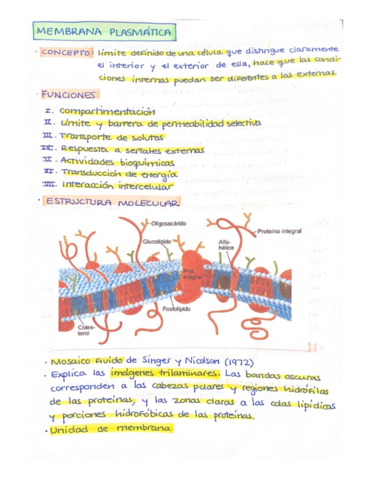 MEMBRANA PLASMÁTICA
· CONCEPTO: límite definido de una célula que distingue claramente
el interior y el exterior de ella, hace que las condi-
ciones internas puedan ser diferentes a las externas
· FUNCIONES
I. Compartimentación
II. Límite y barrera de permeabilidad selectiva
III. Transporte de solutos
IV. Respuesta a señales externas
V. Actividades bioquímicas
VI. Transducción de energía
VII. Interacción intercelular
· ESTRUCTURA MOLECULAR
Oligosacárido
Glucolípido
Alfa-
hélice
Proteína integral
Prot.
integral
Fosfolípido
Coles-
terol
· Mosaico fluido de Singer y Nicolson (1972)
· Explica las imágenes trilaminares. Las bandas oscuras
corresponden a las cabezas polares y regiones hidrófilas
de las proteínas, y las zonas claras a las colas lipídicas
y porciones hidrofóbicas de las proteínas.
· Unidad de membrana